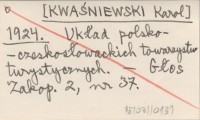 [KWAŚNIEWSKI Karol]
1924. Układ polsko-
-czeskosłowackich towarzystw
turystycznych. – Głos
Zakop. 2, nr 37.